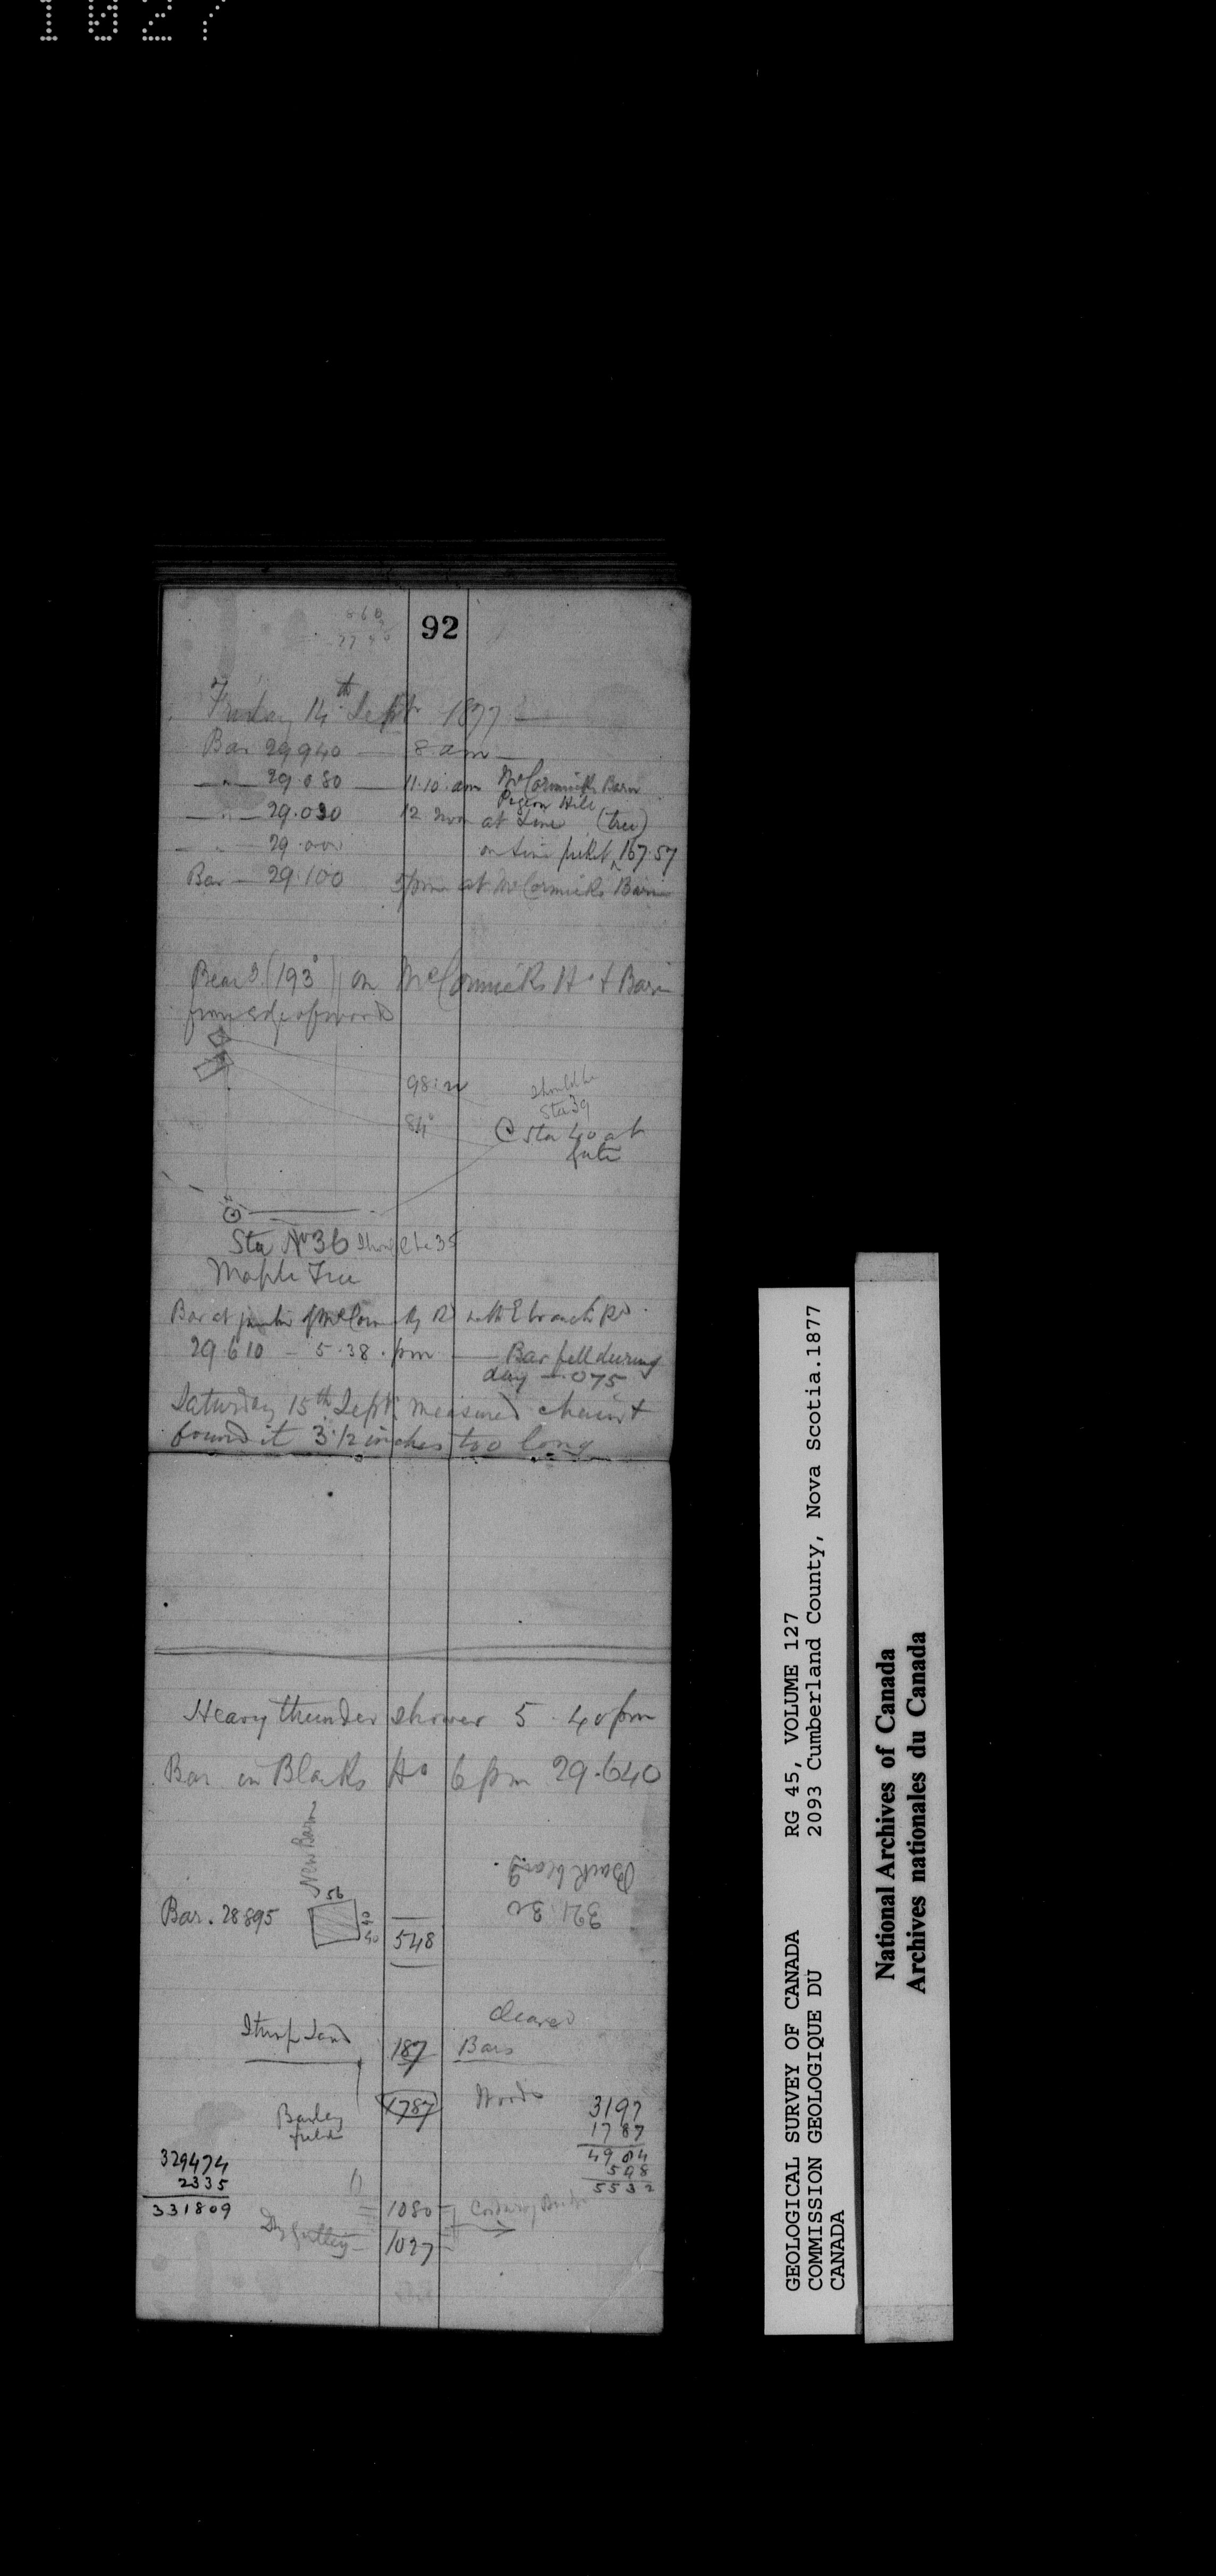 1027
92
Friday 14th Sept 1877
Bar 29940 — 8 am —
— " — 29.080 — 11.10 am McCormick Barn
Pigeon Hill
— " — 29.030 12 noon at Line (tree)
29.000 on Line picket 167.57
Bar — 29.100 5 pm at McCormicks Barn
Bear g (193°) on McCormicks Ho & Barn
from edge of woods
98:
84°
should be
Sta 39
Sta 40 at
gate
Sta No 36 should be 35
Maple Tree
Bar at of McCorm Rd with E branch Rd.
29.610 — 5.38. pm — Bar fell during
day — .075
Saturday 15th Sept. measured chain &
found it 3 1/2 inches too long
Heavy thunder shower 5.40 pm
Bar in Blacks Ho 6 pm 29.640
New Barn
Back bearg
321 30
Bar. 28895
56
40
50
548
Stump Land
187
cleared
Bars
1787
Woods
Barley
field
3197
1787
4984
548
5532
329474
2335
331809
1080
Corduroy Bridge
1027
RG 45, VOLUME 127
2093 Cumberland County, Nova Scotia.1877
GEOLOGICAL SURVEY OF CANADA
COMMISSION GEOLOGIQUE DU
CANADA
National Archives of Canada
Archives nationales du Canada